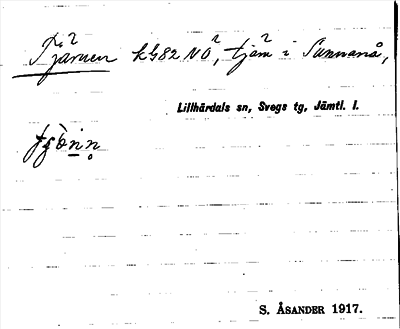 Tjärnen kG82 NO, tjärn i Sunnanå,
Lillhärdals sn, Svegs tg, Jämtl. l.
S. ÅSANDER 1917.